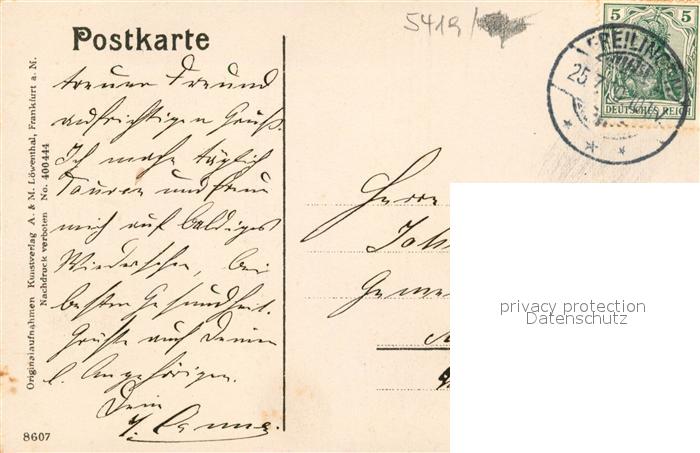 5419
Postkarte
5 5
DEUTSCHES REICH
25.7.
treuen Freund
aufrichtigen Gruß.
Ich mache täglich
Touren und freue
mich auf baldiges
Wiedersehen, bei
bester Gesundheit.
Grüße auch Deinen
l. Angehörigen.
Dein
Originalaufnahmen Kunstverlag A. & M. Löwenthal, Frankfurt a. N.
Nachdruck verboten No. 400444
8607
Herrn
Joh
Geme
privacy protection
Datenschutz